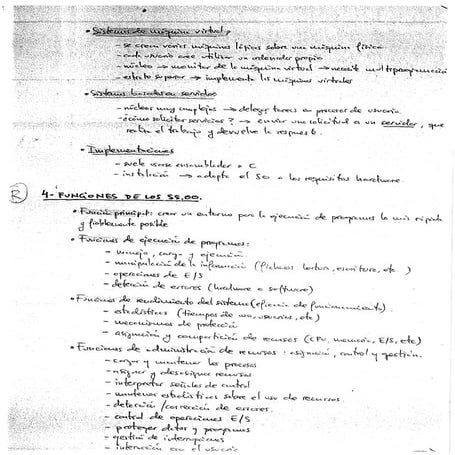 • Sistemas de máquina virtual,
- se crean varias máquinas lógicas sobre una máquina física
- cada usuario cree utilizar un ordenador propio
- núcleo → monitor de la máquina virtual → necesita multiprogramación
- estrato superior → implementa las máquinas virtuales
• Sistemas basados en servidor
- núcleos muy complejos → delegar tareas a procesos de usuario
- ¿cómo solicitar servicios? → enviar una solicitud a un servidor, que
realiza el trabajo y devuelve la respuesta.
• Implementaciones
- suele usarse ensamblador o C
- instalación → adapta el SO a los requisitos hardware.
R
4- FUNCIONES DE LOS SS.OO.
• Función principal: crear un entorno para la ejecución de programas lo más rápida
y fiablemente posible
• Funciones de ejecución de programas:
- manejo, carga y ejecución
- manipulación de la información (ficheros lectura, escritura, etc)
- operaciones de E/S
- detección de errores (hardware o software)
• Funciones de rendimiento del sistema (eficacia de funcionamiento).
- estadísticas (tiempos de uso, usuarios, etc)
- mecanismos de protección
- asignación y compartición de recursos (CPU, memoria, E/S, etc)
• Funciones de administración de recursos: asignación, control y gestión.
- cargar y mantener los procesos
- asignar y desasignar recursos
- interpretar señales de control
- mantener estadísticas sobre el uso de recursos.
- detección / corrección de errores.
- control de operaciones E/S
- proteger datos y programas
- gestión de interrupciones
- interacción con el usuario